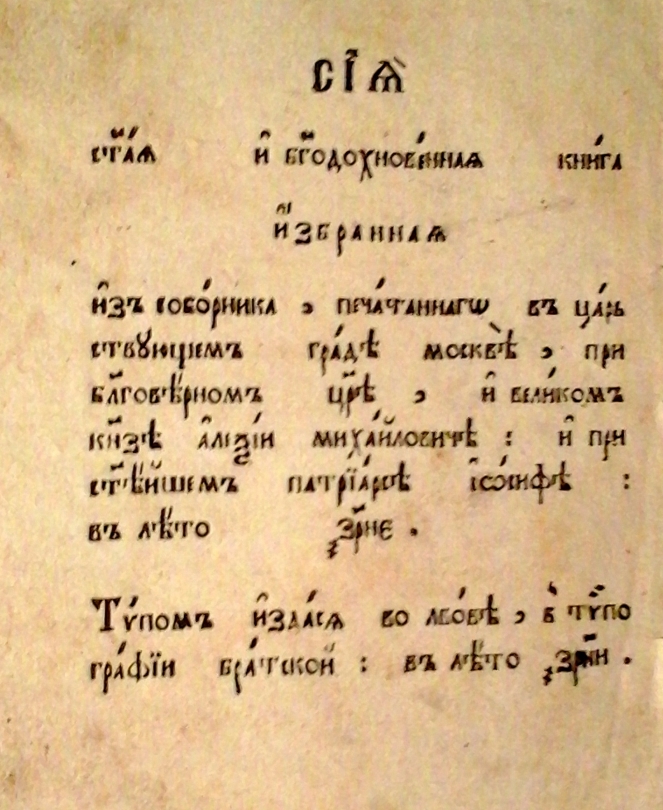 СІѦ̀
ст҃а́ѧ и҆ бг҃одохнове́ннаѧ кни́га
и҆збраннаѧ
и҆зъ собо́рника , печа́таннагѡ въ ца́рь
ствꙋющемъ гра́дѣ москвѣ̀ , при
бл҃говѣ́рномъ цр҃ѣ , и҆ вели́комъ
кн҃зѣ а҆леѯі́и миха́йловичѣ : и҆ при
ст҃ѣ́йшемъ патрїа́рсѣ іѡ́сифѣ :
въ лѣ́то ҂зр҃не .
Тѵ́помъ и҆зда́сѧ во лво́вѣ , в̾ тѵпо
гра́фїи бра́тской : въ лѣ́то ҂зрн҃и .